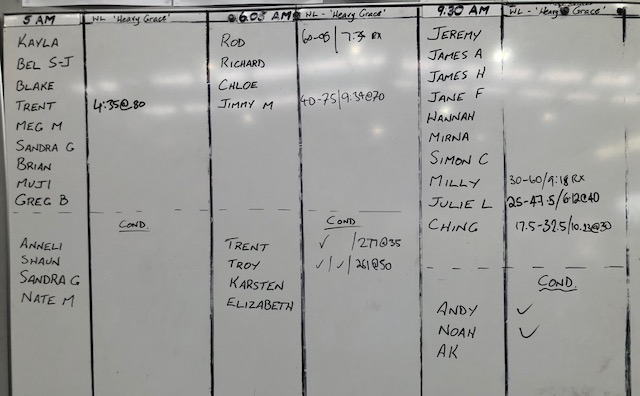 5 AM WL 'Heavy Grace'
KAYLA
BEL S-J
BLAKE
TRENT 4:35@80
MEG M
SANDRA G
BRIAN
MUJI
GREG B
COND.
ANNELI
SHAUN
SANDRA G
NATE M
6.05 AM WL - 'Heavy Grace'
ROD RX
RICHARD
CHLOE
JIMMY M 40-75/9:34@70
COND
TRENT ✓ /277@35
TROY ✓/✓/261@50
KARSTEN
ELIZABETH
9.30 AM WL - 'Heavy Grace'
JEREMY
JAMES A
JAMES H
JANE F
HANNAH
MIRNA
SIMON C
MILLY 30-60/9:18 RX
JULIE L 25-47.5/6:12@40
CHING 17.5-32.5/10.23@30
COND.
ANDY ✓
NOAH ✓
AK